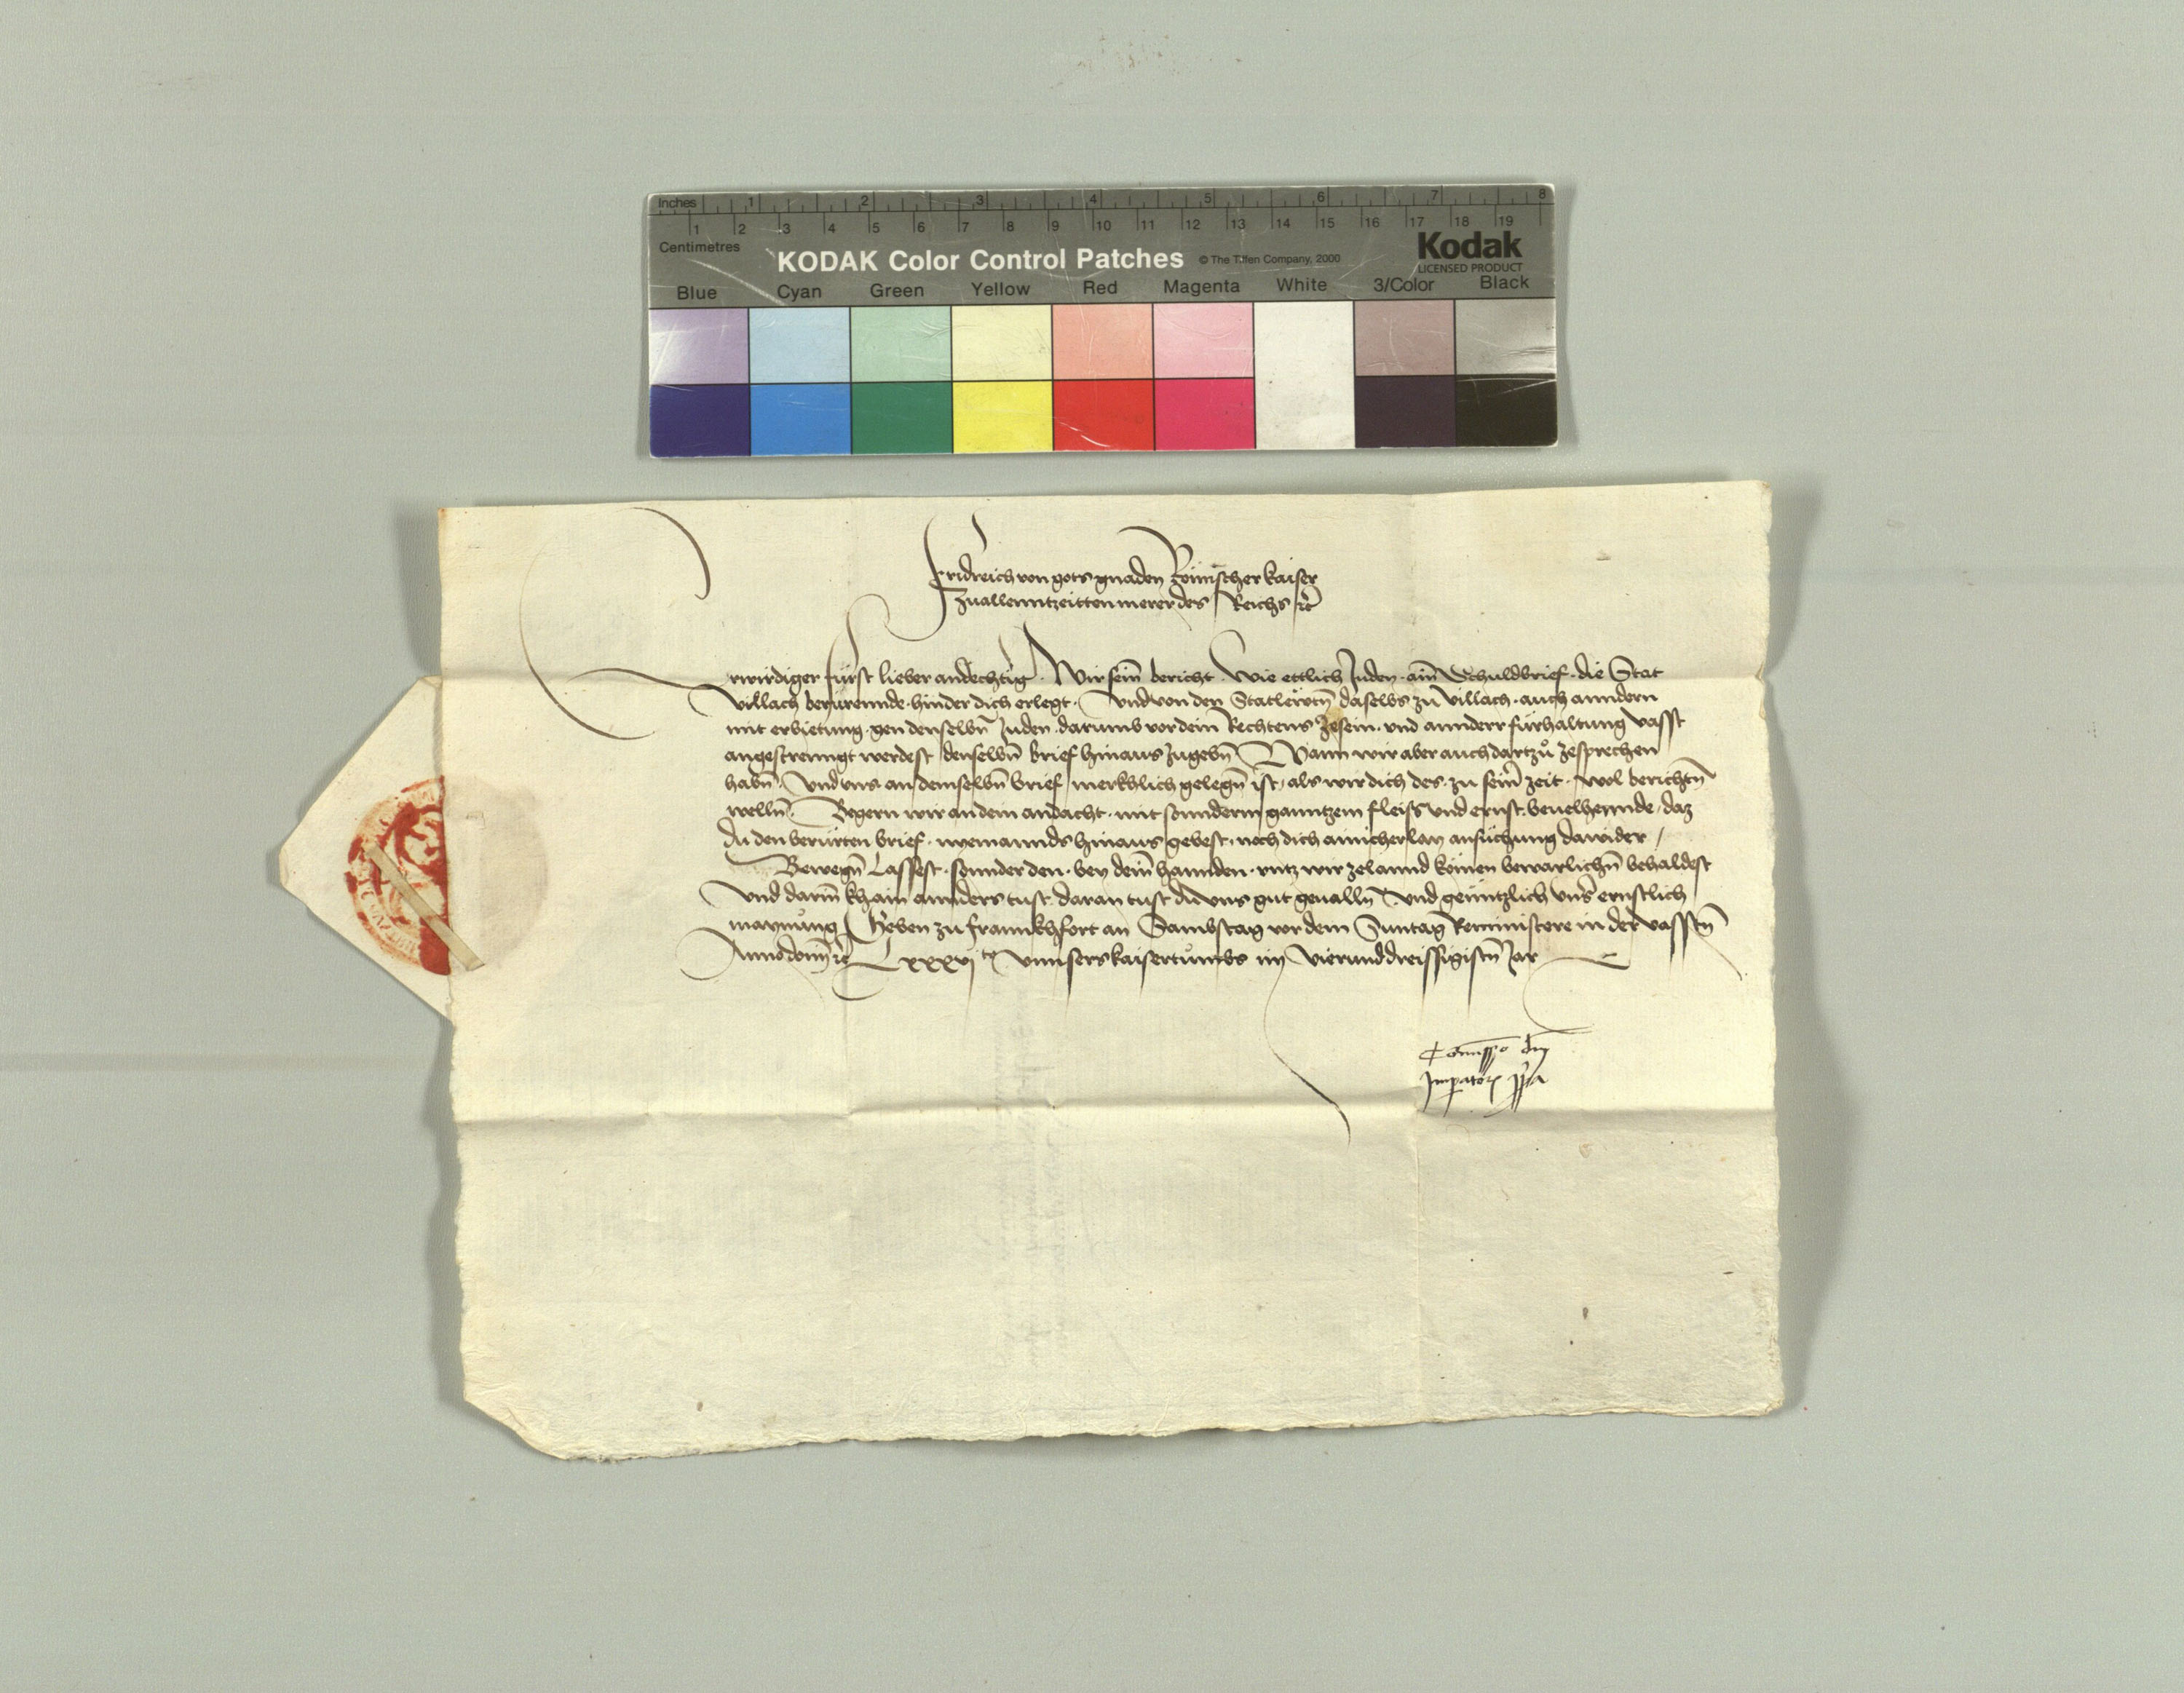 Inches 1 2 3 4 5 6 7 8
1 2 3 4 5 6 7 8 9 10 11 12 13 14 15 16 17 18 19
Centimetres
KODAK Color Control Patches © The Tiffen Company, 2000 Kodak
LICENSED PRODUCT
Blue Cyan Green Yellow Red Magenta White 3/Color Black
Fridreich von gots gnaden Römischer kaiser
zuallenntzeitten merer des Reichs ꝛc̄
Erwirdiger fürst lieber andechtig. Wir sein̄ bericht. Wie ettlich Juden. ain̄ Schuldbrief. die Stat
Villach berurennde. hinder dich erlegt. Und von den Statleẅtn̄ daselbs zu Villach. auch anndern
mit erbietung. gen denselbn̄ Juden. darumb vor dein Rechtens zesein. vnd annderr fürhaltung vasst
angestrenngt werdest denselbn̄ brief hinaus zugebn̄ Wann wir aber auch dartzů zesprechen
habn̄. Und vns an demselbn̄ brief merkhlich gelegn̄ ist, als wir dich des. zu sein̄ zeit. wol berichtn̄
welln̄. Begern wir an dein andacht. mit sonnderm ganntzem fleiss vnd ernst. beuelhennde, daz
du den berürten brief. nyemannds hinaus gebest. noch dich ainicherlay ansüchung dawider /
Bewegn̄ Lassest. sonnder den. bey dein̄ hannden. vntz wir zelannd kömen bewarlichn̄ behaldest
Und darin̄ khain annders tust. daran tust du vns gut geualln̄ Und genntzlich vns̄ ernstlich
maynung Geben zu Frannkhfort an Sambstag vor dem Sunntag Reministere in der vasstn̄
Anno domī ꝛc̄ Lxxxvj to Unnsers kaisertůmbs im Vierunddreissigistn̄ Jar
Com̄issio dn̄j
Imp̄atoris pp̄a